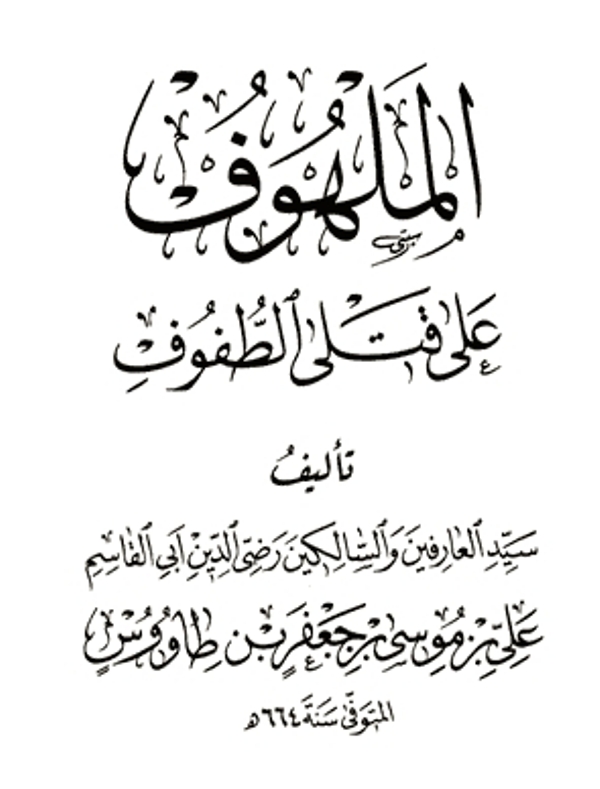 المَلهُوفُ
عَلىٰ قَتلَى الطُّفُوفِ
تأليفُ
سَيِّدِ العَارِفينَ وَالسَّالِكينَ رَضِيِّ الدِّينِ أبي القَاسِمِ
عَلِيّ بنِ مُوسىٰ بنِ جَعْفَرِ بْنِ طَاوُوسٍ
المتوَفّىٰ سَنَةَ ٦٦٤ ه